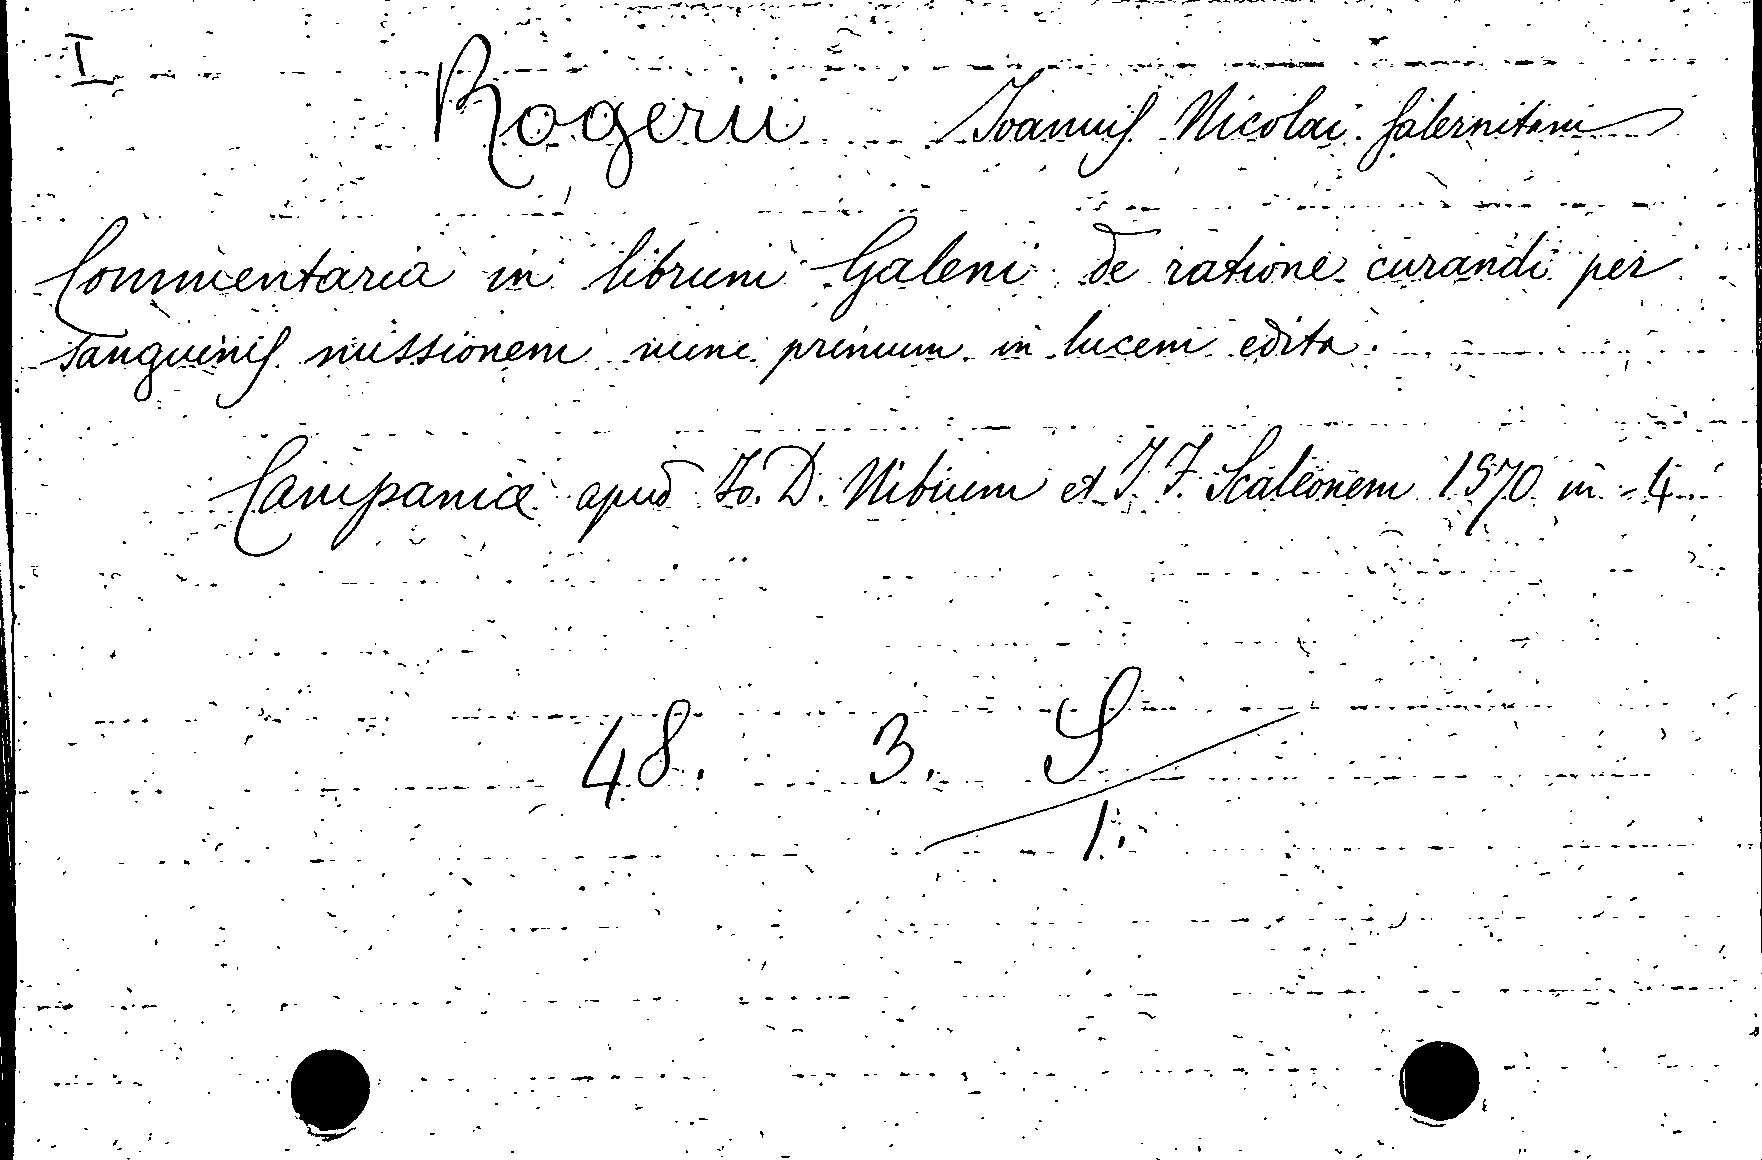 I
Rogerii Ioannis Nicolai Salernitani
Commentaria in librum Galeni de ratione curandi per
sanguinis missionem nunc primum in lucem edita.
Campaniæ apud Io. D. Nibium et I. F. Scaleonem 1570 in-4.
48. 3. S
1.